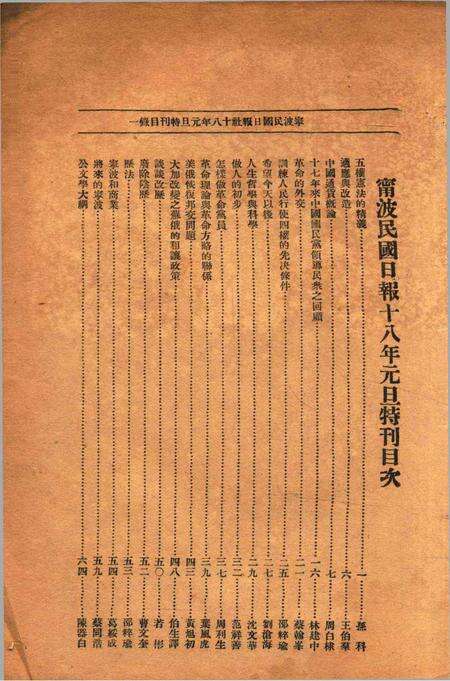 寗波民國日報社十八年元旦特刊目錄一
甯波民國日報十八年元旦特刊目次
五權憲法的精義 一 孫科
適應與改造 六 王伯羣
中國通貨概論 七 周白棣
十七年來中國國民黨領導民衆之回顧 一六 林建中
革命的外交 二一 蔡翰峯
訓練人民行使四權的先決條件 二五 邵粹瑜
希望今天以後 二七 劉滄海
人生哲學與科學 二九 沈文華
做人的初步 三二 范祥善
怎樣做革命黨員 三七 周利生
革命理論與革命方略的聯係 三九 葉風虎
美俄恢復邦交問題 四三 黃旭初
大加改變之蘇俄的和議政策 四八 伯生譯
談談改歷 五〇 若彬
廢除陰歷 五二 曹文奎
歷法 五三 邵粹瑜
寗波和商業 五四 葛綏成
將來的寗波 五九 蔡同浩
公文學大綱 六四 陳器白